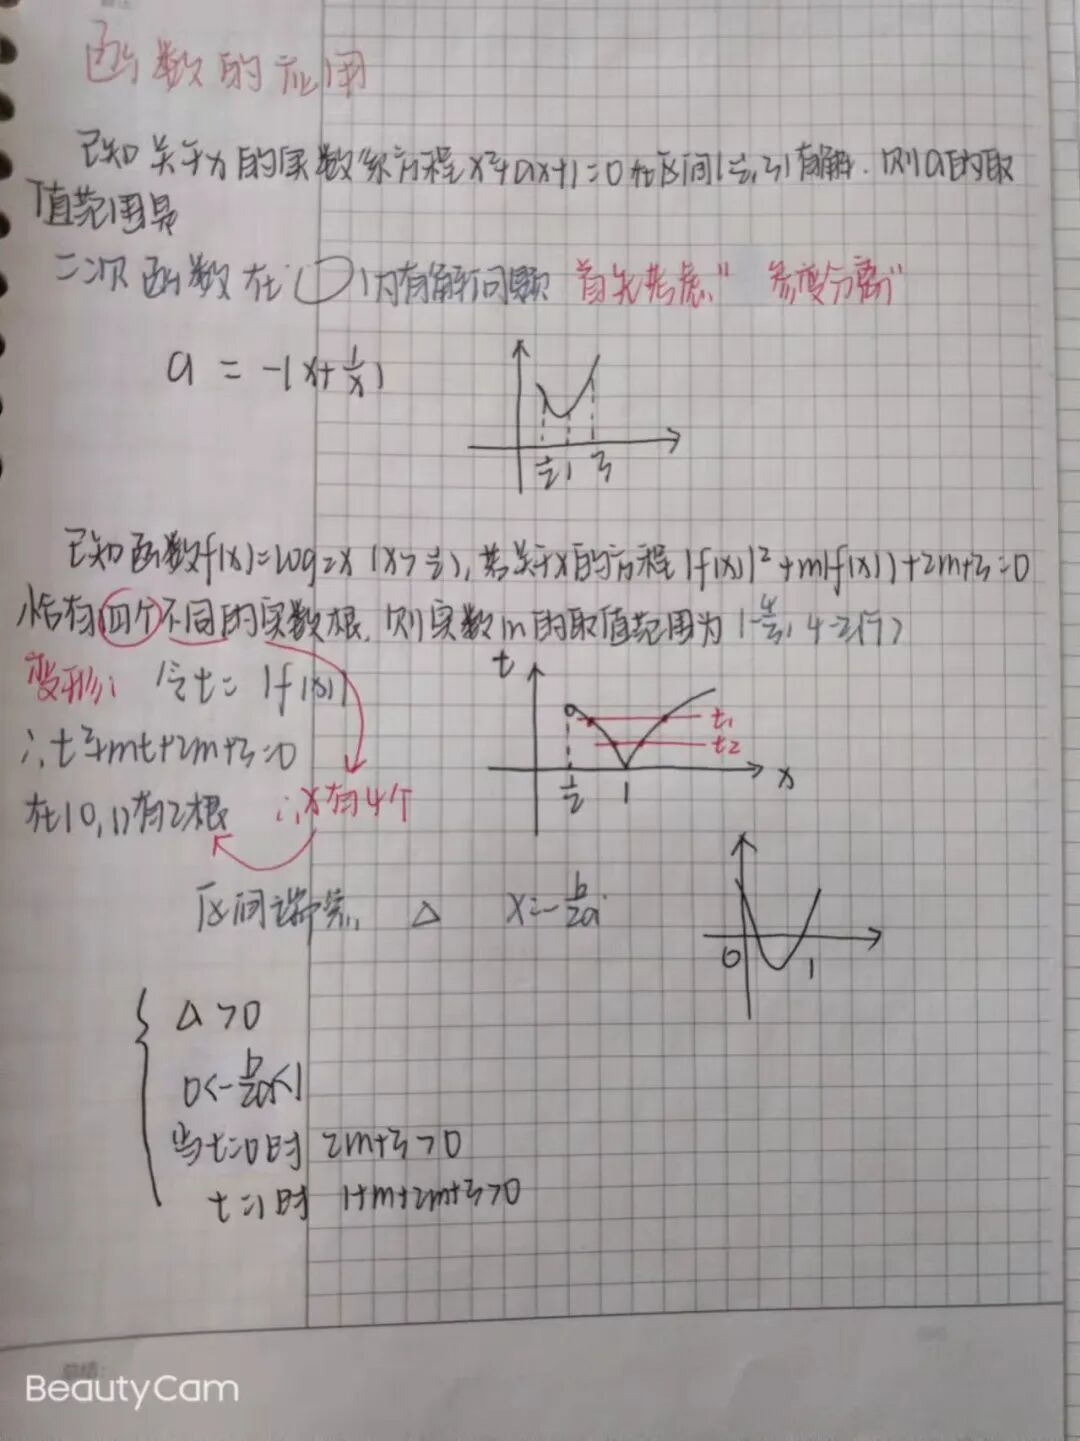 函数的应用
已知关于x的实数系方程x²+ax+1=0在区间(½,3)有解.则a的取
值范围是
二次函数在( )内有解问题 首先考虑"参变分离"
a = -(x+1/x)
½ 1 3
已知函数f(x)=log₂x (x>½),若关于x的方程|f(x)|²+m|f(x)|+2m+3=0
恰有四个不同的实数根,则实数m的取值范围为(-4/3,4-2√7)
变形: 令t=|f(x)|
t
t₁
t₂
½ 1 x
∴t²+mt+2m+3=0
在(0,1)有2根 ∴x有4个
区间端点 Δ x=-b/2a
0 1
Δ>0
0<-b/2a<1
当t=0时 2m+3>0
t=1时 1+m+2m+3>0
BeautyCam